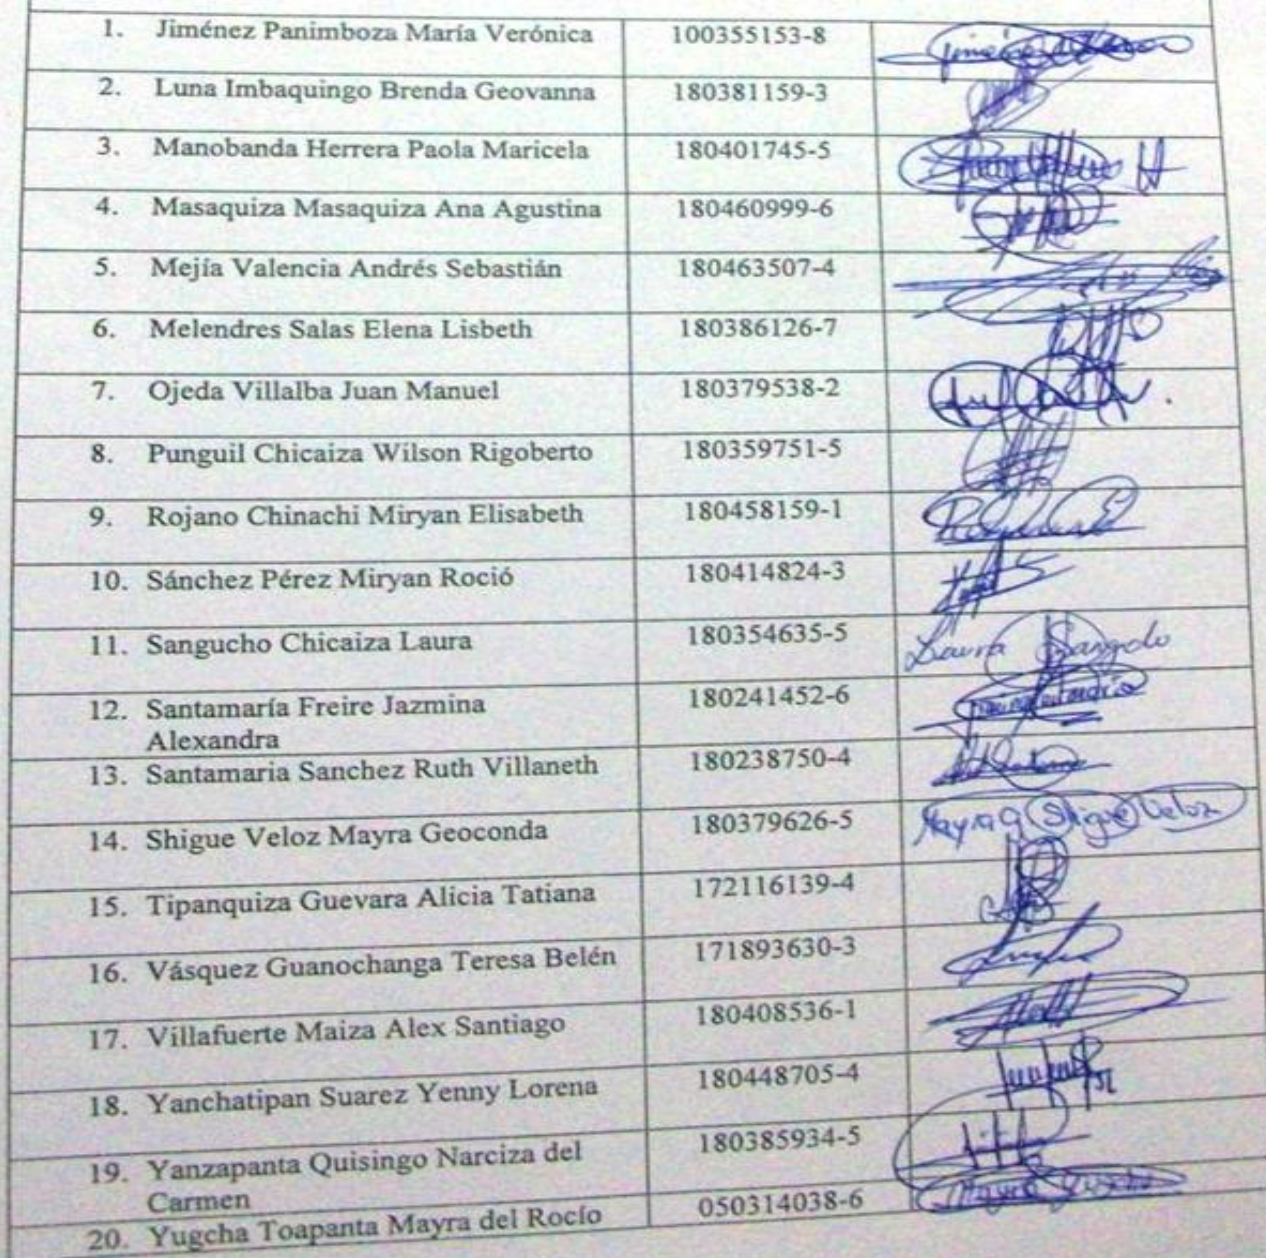 1. Jiménez Panimboza María Verónica 100355153-8
2. Luna Imbaquingo Brenda Geovanna 180381159-3
3. Manobanda Herrera Paola Maricela 180401745-5
4. Masaquiza Masaquiza Ana Agustina 180460999-6
5. Mejía Valencia Andrés Sebastián 180463507-4
6. Melendres Salas Elena Lisbeth 180386126-7
7. Ojeda Villalba Juan Manuel 180379538-2
8. Punguil Chicaiza Wilson Rigoberto 180359751-5
9. Rojano Chinachi Miryan Elisabeth 180458159-1
10. Sánchez Pérez Miryan Roció 180414824-3
11. Sangucho Chicaiza Laura 180354635-5 Laura
12. Santamaría Freire Jazmina 180241452-6
Alexandra
13. Santamaria Sanchez Ruth Villaneth 180238750-4
14. Shigue Veloz Mayra Geoconda 180379626-5 Mayra G Shigue Veloz
15. Tipanquiza Guevara Alicia Tatiana 172116139-4
16. Vásquez Guanochanga Teresa Belén 171893630-3
17. Villafuerte Maiza Alex Santiago 180408536-1
18. Yanchatipan Suarez Yenny Lorena 180448705-4
19. Yanzapanta Quisingo Narciza del 180385934-5
Carmen
20. Yugcha Toapanta Mayra del Rocío 050314038-6